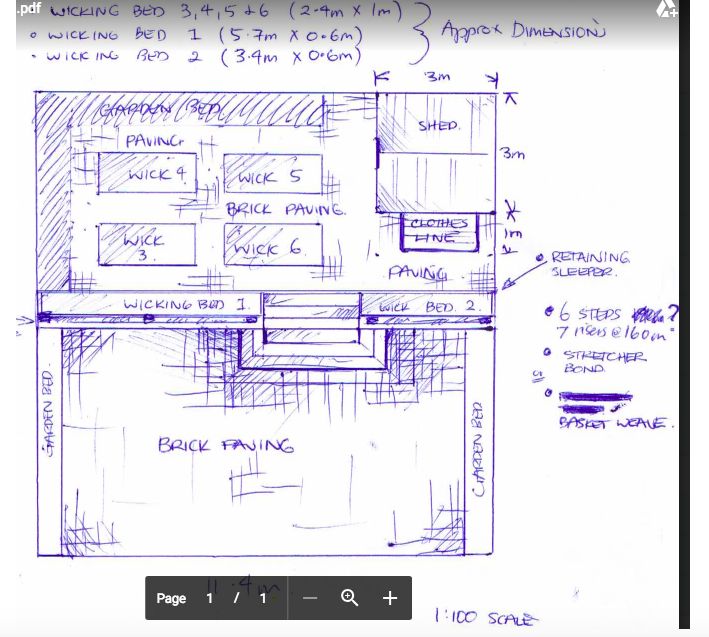 .pdf
WICKING BED 3, 4, 5 & 6 (2.4m X 1m)
• WICKING BED 1 (5.7m X 0.6m)
• WICKING BED 2 (3.4m X 0.6m)
Approx DIMENSIONS
3m
GARDEN BED
SHED.
PAVING
3m
WICK 4
WICK 5
BRICK PAVING.
CLOTHES
LINE
1m
WICK
3.
WICK 6
PAVING
• RETAINING
SLEEPER.
WICKING BED 1.
WICK BED. 2.
• 6 STEPS ?
7 risers @ 160m
• STRETCHER
BOND
• BASKET WEAVE.
GARDEN BED.
BRICK PAVING
GARDEN BED
11.4m
Page 1 / 1
1:100 SCALE